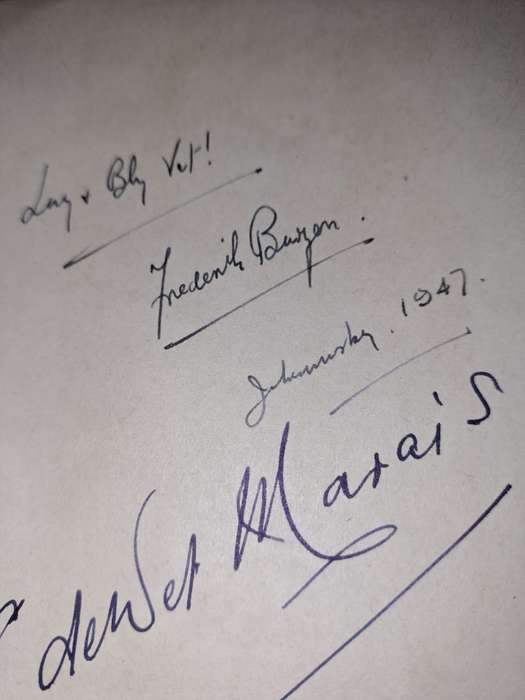 Lag & Bly Vet!
Frederik Burgers.
Johannesburg. 1947.
de Wet Marais